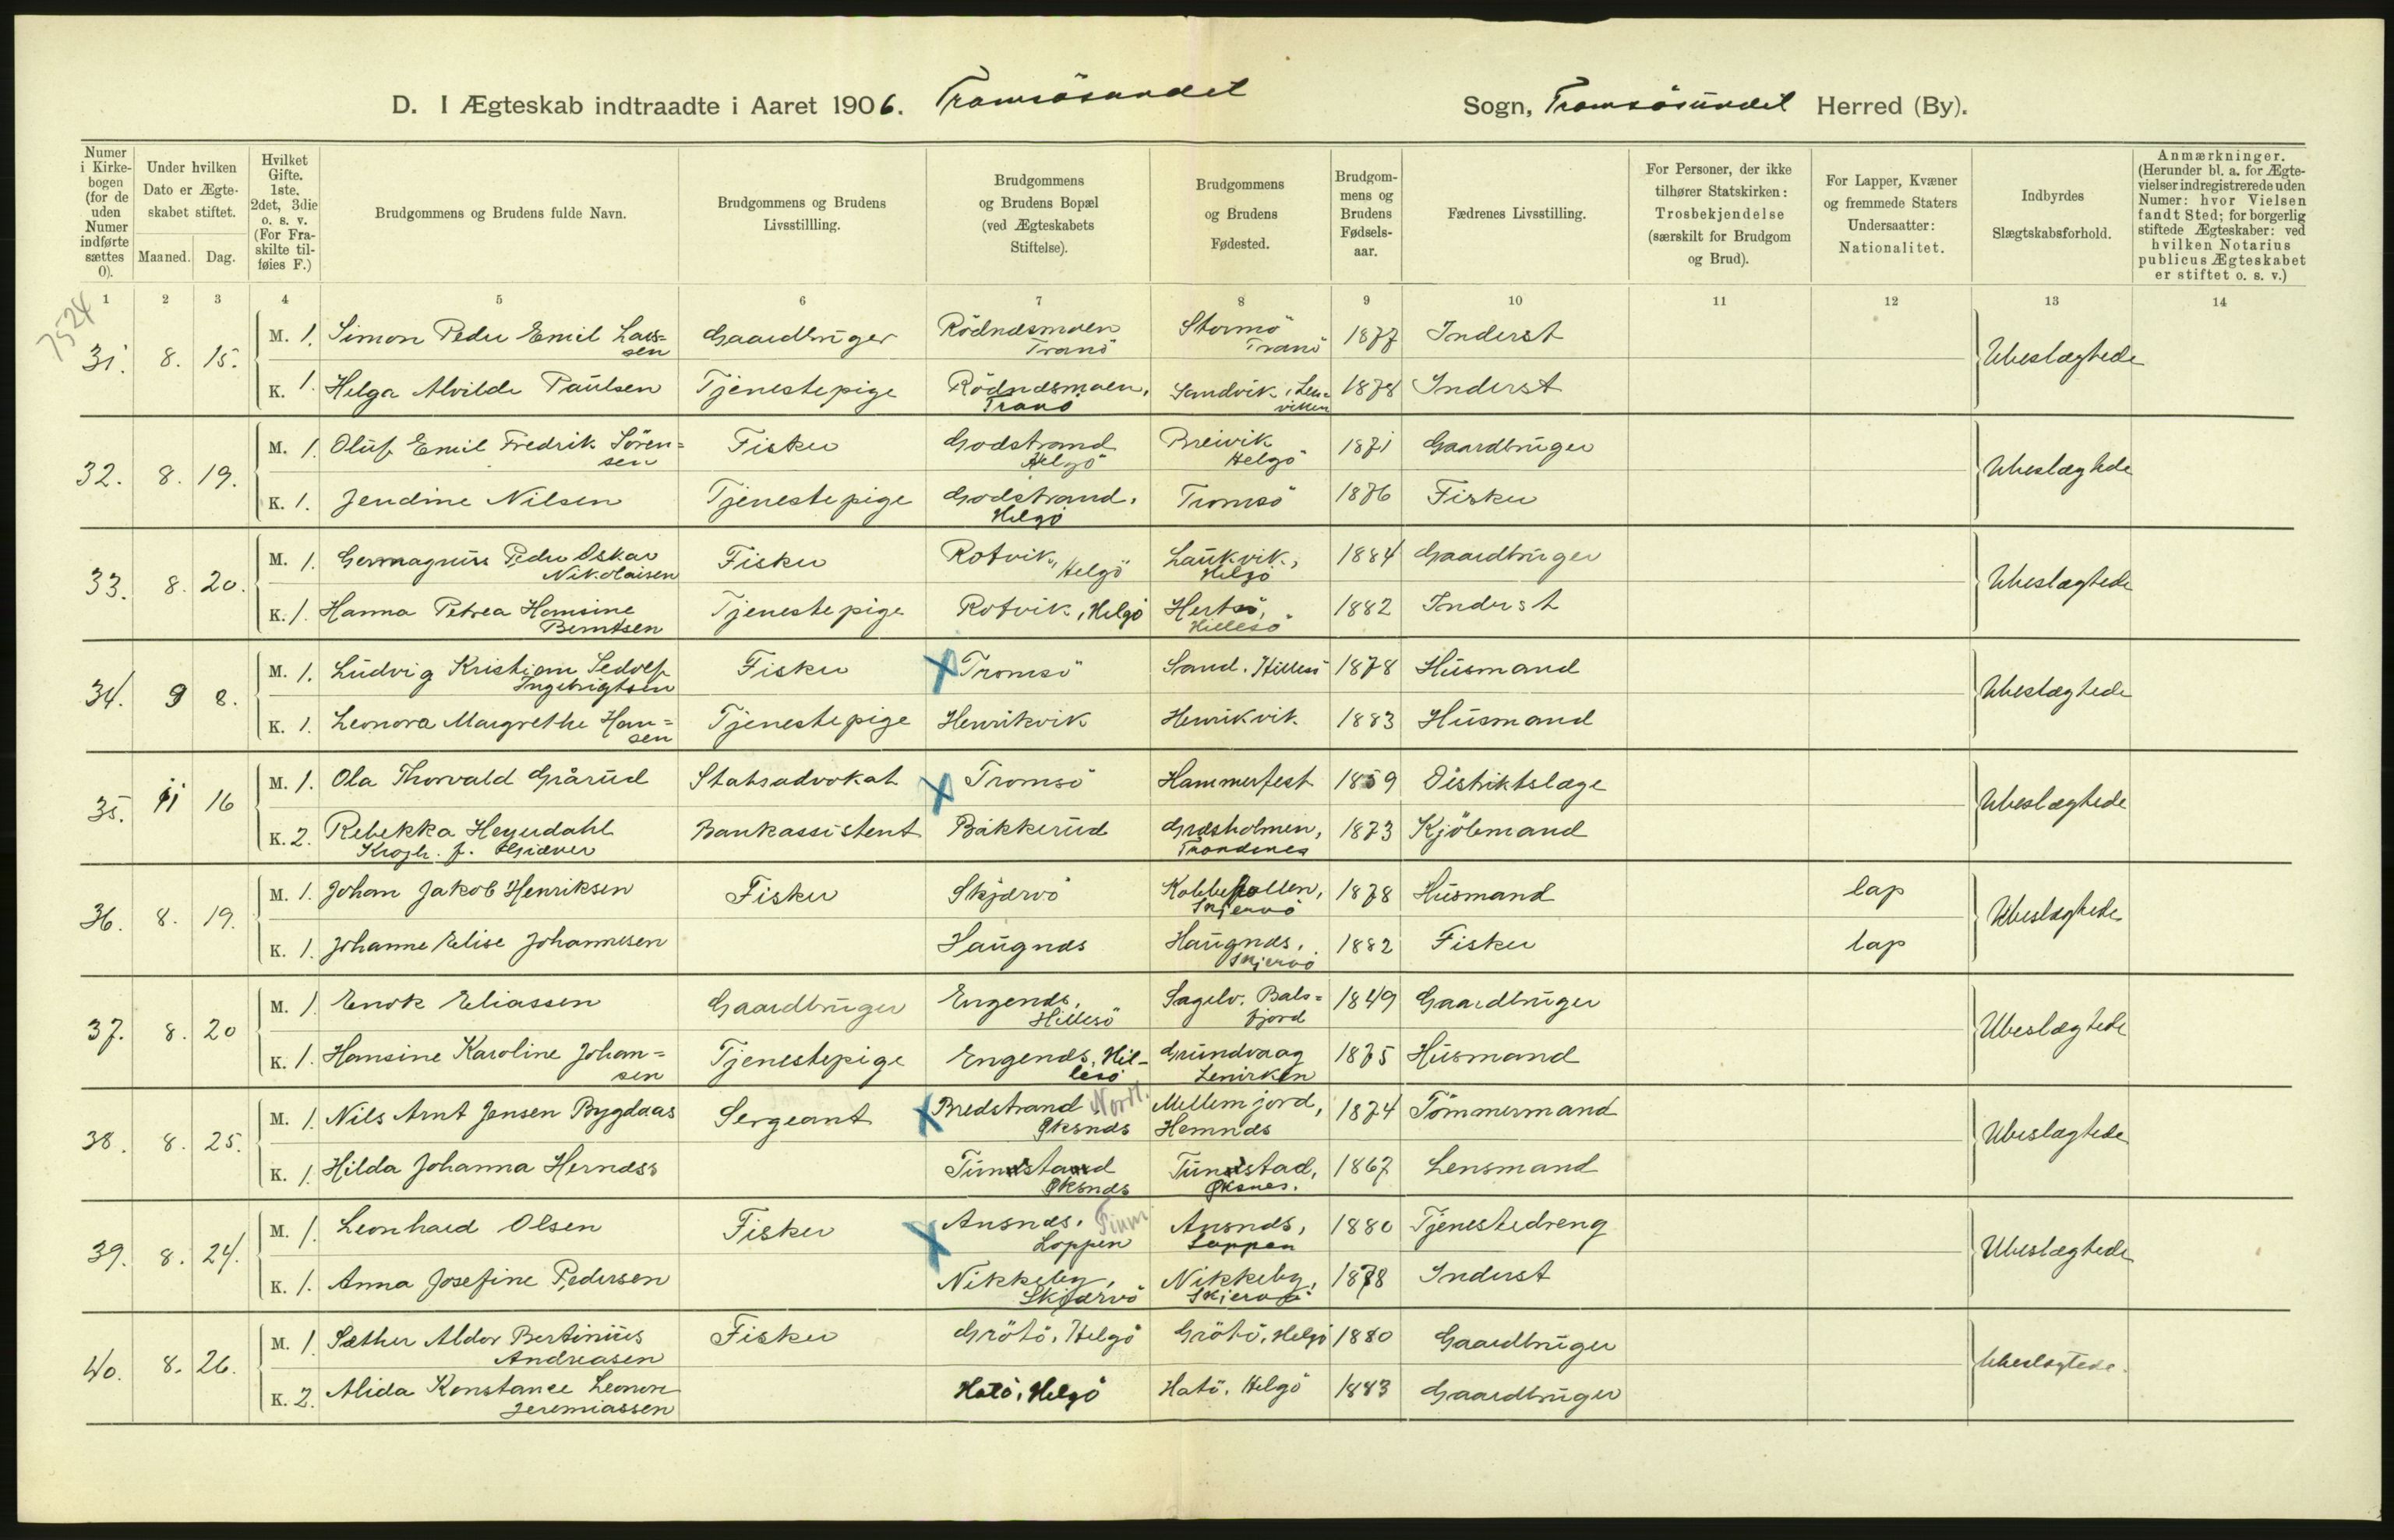 D. I Ægteskab indtraadte i Aaret 1906. Tromsösundet Sogn, Tromsösundet Herred (By).
Numer i Kirkebogen (for de uden Numer indførte sættes 0).
Under hvilken Dato er Ægteskabet stiftet.
Maaned. Dag.
Hvilket Gifte. 1ste, 2det, 3die o. s. v. (For Fraskilte tilføies F.)
Brudgommens og Brudens fulde Navn.
Brudgommens og Brudens Livsstillling.
Brudgommens og Brudens Bopæl (ved Ægteskabets Stiftelse).
Brudgommens og Brudens Fødested.
Brudgommens og Brudens Fødselsaar.
Fædrenes Livsstilling.
For Personer, der ikke tilhører Statskirken: Trosbekjendelse (særskilt for Brudgom og Brud).
For Lapper, Kvæner og fremmede Staters Undersaatter: Nationalitet.
Indbyrdes Slægtskabsforhold.
Anmærkninger. (Herunder bl. a. for Ægtevielser indregistrerede uden Numer: hvor Vielsen fandt Sted; for borgerlig stiftede Ægteskaber: ved hvilken Notarius publicus Ægteskabet er stiftet o. s. v.)
1 2 3 4 5 6 7 8 9 10 11 12 13 14
7524
31. 8. 15. M. 1. Simon Peder Emil Lars=sen Gaardbruger Rödnæsmoen Tranö Stormö Tranö 1877 Inderst Ubeslægtede
K. 1. Helga Alvilde Paulsen Tjenestepige Rödnæsmoen, Tranö Sandvik, Len=viken 1878 Inderst
32. 8. 19. M. 1. Oluf Emil Fredrik Sören=sen Fisker Godstrand Helgö Breivik Helgö 1871 Gaardbruger Ubeslægtede
K. 1. Jendine Nilsen Tjenestepige Godstrand, Helgö Tromsö 1876 Fisker
33. 8. 20. M. 1. Germagnus Peder Oskar Nikolaisen Fisker Rotvik, Helgö Laukvik, Helgö 1884 Gaardbruger Ubeslægtede
K. 1. Hanna Petrea Hansine Berntsen Tjenestepige Rotvik, Helgö Hertsö, Hillesö 1882 Inderst
34. 9 8. M. 1. Ludvig Kristian Sedolf Ingebrigtsen Fisker Tromsö Sand. Hillesö 1878 Husmand Ubeslægtede
K. 1. Leonora Margrethe Han=sen Tjenestepige Henrikvik Henrikvik 1883 Husmand
35. 11 16 M. 1. Ola Thorvald Grårud Statsadvokat Tromsö Hammerfest 1859 Distriktslæge Ubeslægtede
K. 2. Rebekka Heyerdahl Krogh. f. Giæver Bankassistent Bakkerud Græsholmen, Trondenes 1873 Kjöbmand
36. 8. 19. M. 1. Johan Jakob Henriksen Fisker Skjærvö Kobbepollen, Skjervö 1878 Husmand lap Ubeslægtede
K. 1. Johanne Elise Johannesen Haugnæs Haugnæs, Skjervö 1882 Fisker lap
37. 8. 20 M. 1. Enok Eliassen Gaardbruger Engenæs, Hillesö Sagelv. Bals=fjord 1849 Gaardbruger Ubeslægtede
K. 1. Hansine Karoline Johan=sen Tjenestepige Engenæs, Hil-lesö Grundvaag Lenviken 1875 Husmand
38. 8. 25. M. 1. Nils Arnt Jensen Bygdaas Sergeant Bredstrand Øksnæs Nordl. Mellemjord, Hemnæs 1874 Tömmermand Ubeslægtede
K. 1. Hilda Johanna Hernæss Tunstad Øksnæs Tunstad, Øksnes. 1867 Lensmand
39. 8. 24. M. 1. Leonhard Olsen Fisker Ansnæs, Loppen Finm. Ansnæs, Loppen 1880 Tjenestedreng Ubeslægtede
K. 1. Anna Josefine Pedersen Nikkeby, Skjærvö Nikkeby, Skjervö 1878 Inderst
40. 8. 26. M. 1. Sæther Aldor Bertinius Andreasen Fisker Grötö, Helgö Grötö, Helgö 1880 Gaardbruger Ubeslægtede.
K. 2. Alida Konstance Leonore Jeremiassen Hatö, Helgö Hatö, Helgö 1883 Gaardbruger